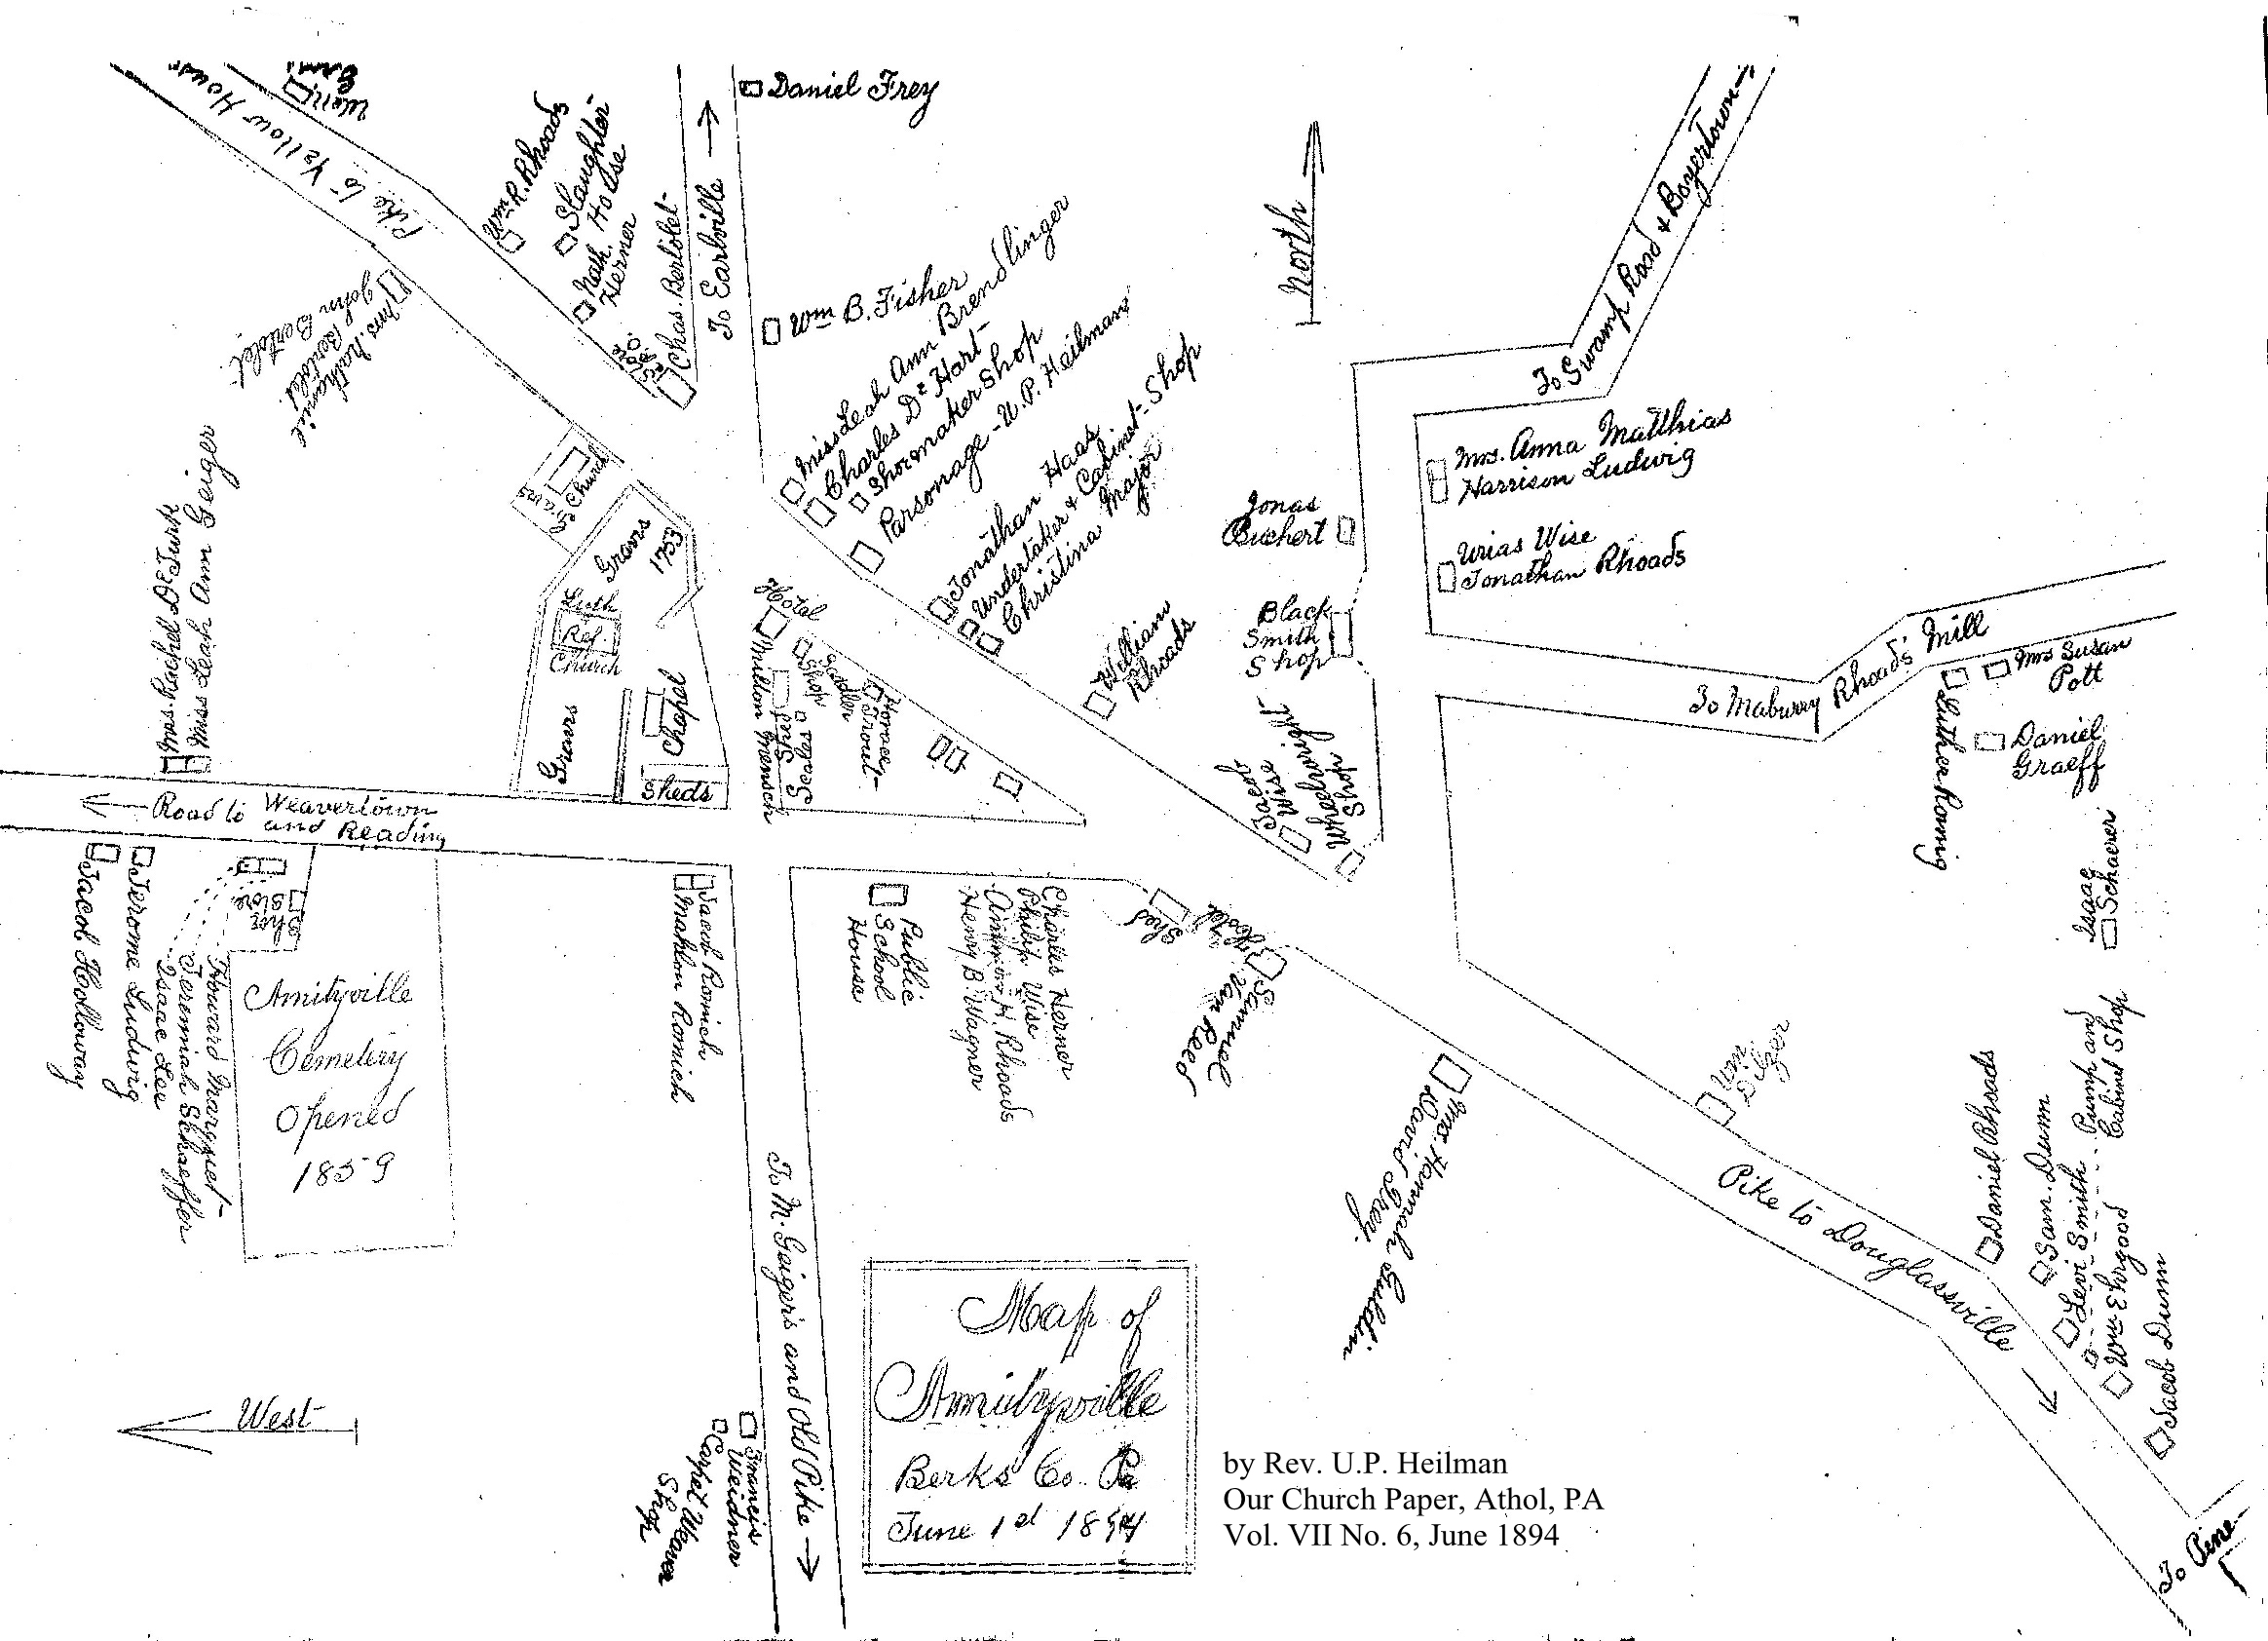 Wm.
Pike to Yellow House
Wm R. Rhoads
Slaughter
House
Nath.
Herner
Chas Bertolet
Store
To Earlville
Daniel Frey
Wm B. Fisher
Mrs. Nathaniel
Bertolet.
John Bertolet.
Miss Leah Ann Brendlinger
Charles De Hart
Shoemaker Shop
Parsonage - U.P. Heilman
Jonathan Haas
Undertaker & Cabinet Shop
Christina Major
William
Rhoads
North
To Swamp Road & Boyertown
Mrs. Anna Matthias
Harrison Ludwig
Urias Wise
Jonathan Rhoads
Jonas
Buchert
Black
Smith
Shop
Jacob
Wise
Wheelwright
Shop
To Maburry Rhoads' Mill
Mrs Susan
Pott
Luther Romig
Daniel
Graeff
Isaac
Schaerer
Graves
Church
Graves
1753
Luth.
Ref.
Church
Graves
Chapel
Sheds
Hotel
Milton Mensch
Shed
Scales
Shop
Sadler
Horace
Trout
Mrs. Rachel DeTurk
Miss Leah Ann Geiger
Road to Weavertown
and Reading
Jacob Holloway
Jerome Ludwig
Isaac Lee
Jeremiah Schaeffer
Howard
Shop
Store
Amityville
Cemetery
Opened
1859
Jacob Romich
Mahlon Romich
Public
School
House
Charles Herner
Philip Wise
Ammon H. Rhoads
Henry B. Wagner
Shed
Hotel
Samuel
Van Reed
Mrs. Hannah Guldin
David Frey.
Wm
Dilger
Pike to Douglassville
Daniel Rhoads
Sam. Dunn
Levi Smith
Pump and
Cabinet Shop
Wm Ehrgood
Jacob Dunn
To Pine
To M. Geiger's and Old Pike
Francis
Weidner
Carpet Weaver
Shop
West
Map of
Amityville
Berks Co. Pa
June 1st 1894
by Rev. U.P. Heilman
Our Church Paper, Athol, PA
Vol. VII No. 6, June 1894